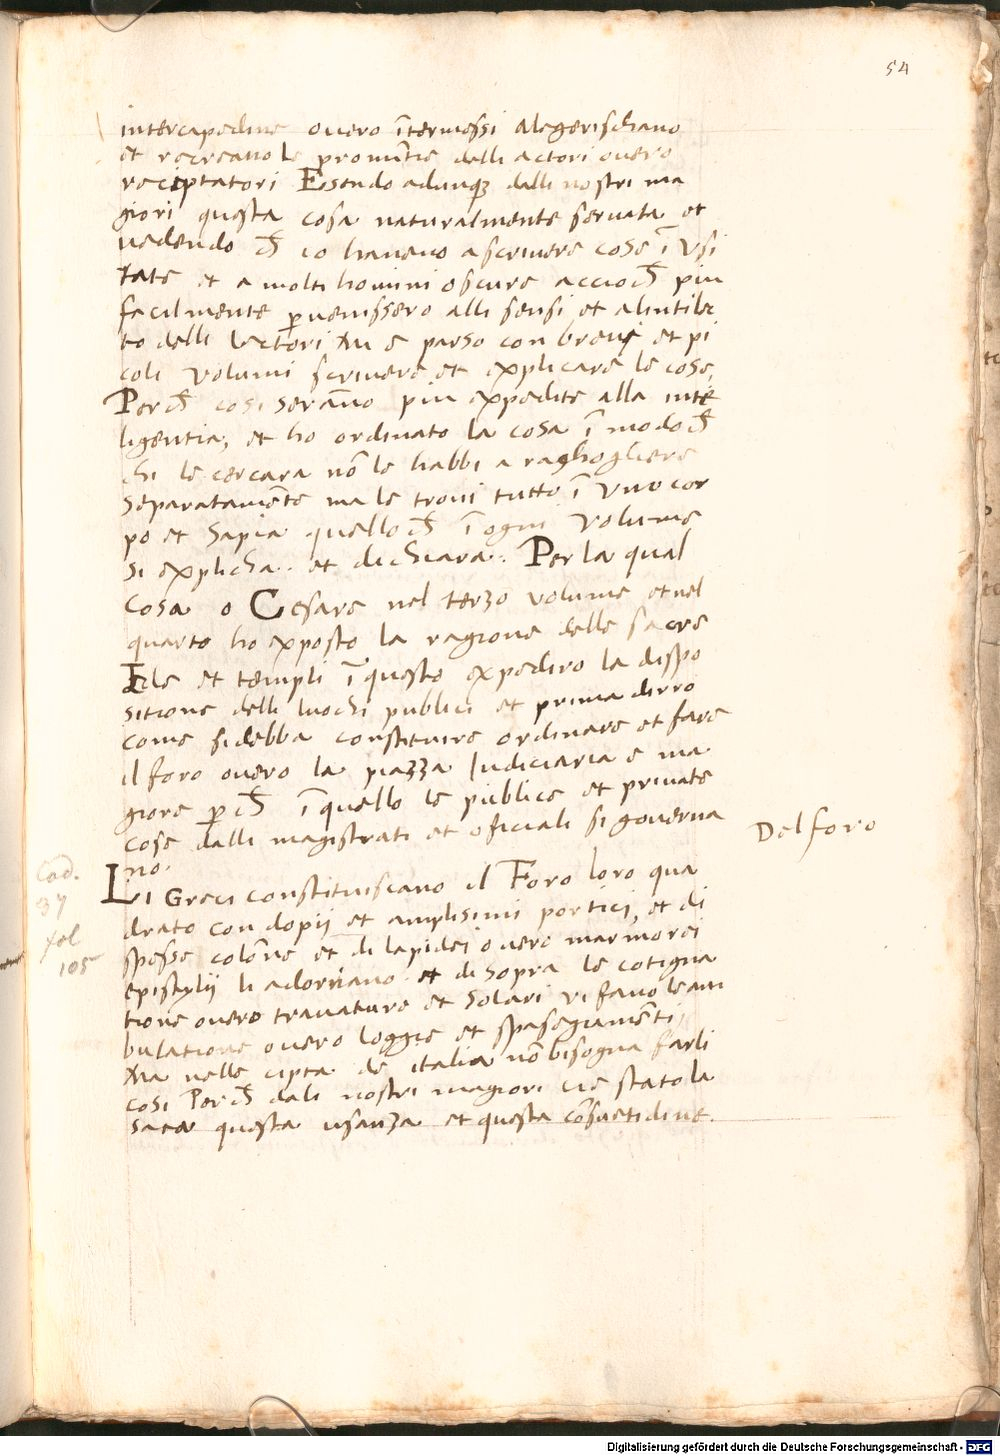 54
intercapedine overo ītermessi alegerischano
et recreano le pronūtie delli actori overo
reciptatori Essendo adunqz dalli nostri ma
giori questa cosa naturalmente servata et
vedendo ch̄ io havevo a scrivere cose ī usi
tate et a molti homini obscure accioch̄ piu
facilmente pvenissero alli sensi et alintilec
to delli lectori Mi e parso con brevi et pi
coli volumi scrivere et explicare le cose,
Perch̄ cosi serāno piu expedite alla inte
ligentia, et ho ordinato la cosa ī modo ch̄
chi le cercara nō le habbi a raghogliere
separatamēte ma le trovi tutto ī uno cor
po et sapia quello ch̄ ī ogni volume
si explicha. et dichiara. Per la qual
cosa o Cesare nel terzo volume et nel
quarto ho exposto la ragione delle sacre
Ede et templi ī questo expediro la dispo
sitione delli luochi publici et prima dirro
come si debba constituire ordinare et fare
il foro overo la piazza Iudiciaria e ma
giore p ch̄ ī quello le publice et private
cose dalli magistrati et oficiali si governa
no.
Del foro
Cod.
37
fol
105
Li Greci constituiscano il Foro loro qua
drato con dopii et amplisimi portici, et di
spesse colōne et di lapidei overo marmorei
epistylii li adornano et di sopra le cotigna
tione overo travature et solari vi fano le am
bulatione overo loggie et spasegiamēti,
Ma nelle cipta de italia nō bisogna farli
cosi Perch̄ dali nostri magiori cie stato la
sata questa usanza et questa cōsuetidine.
Digitalisierung gefördert durch die Deutsche Forschungsgemeinschaft - DFG